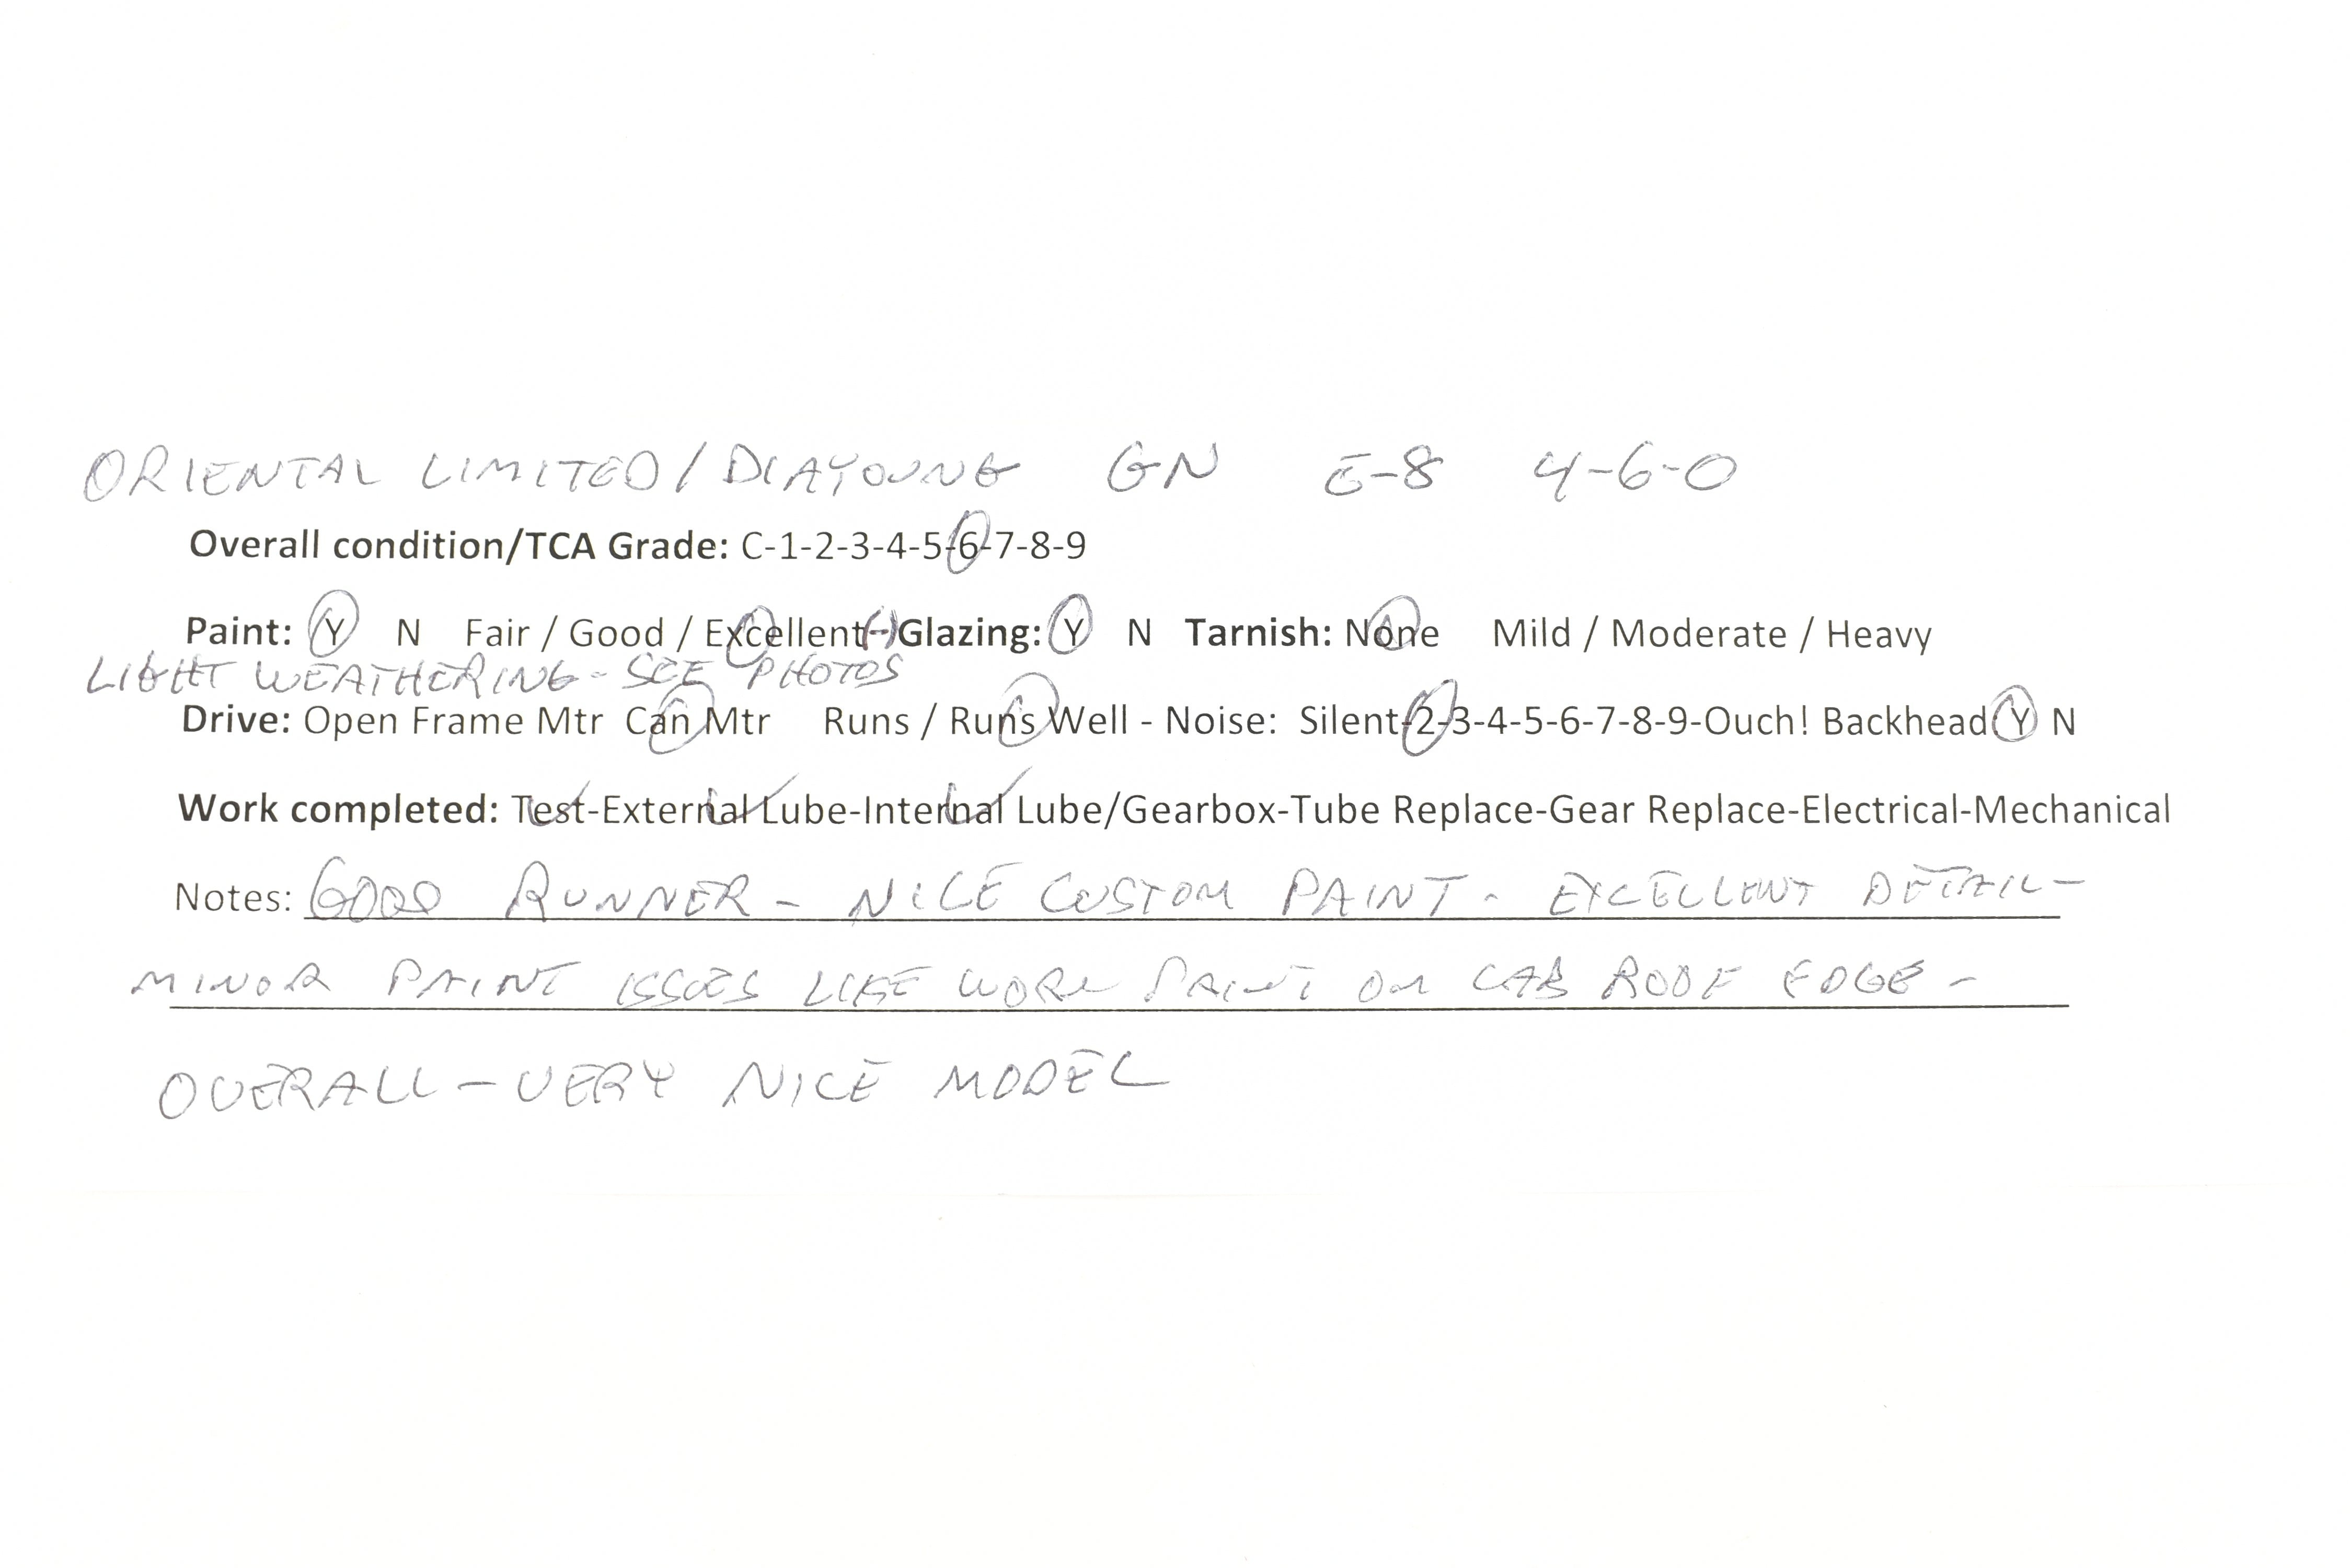 ORIENTAL LIMITED/DIAYOUNG GN E-8 4-6-0
Overall condition/TCA Grade: C-1-2-3-4-5-6-7-8-9
Paint: Y N Fair / Good / Excellent(-) Glazing: Y N Tarnish: None Mild / Moderate / Heavy
LIGHT WEATHERING - SEE PHOTOS
Drive: Open Frame Mtr Can Mtr Runs / Runs Well - Noise: Silent-2-3-4-5-6-7-8-9-Ouch! Backhead Y N
Work completed: Test-External Lube-Internal Lube/Gearbox-Tube Replace-Gear Replace-Electrical-Mechanical
Notes: GOOD RUNNER - NICE CUSTOM PAINT - EXCELLENT DETAIL -
MINOR PAINT ISSUES LIKE WORN PAINT ON CAB ROOF EDGE -
OVERALL - VERY NICE MODEL